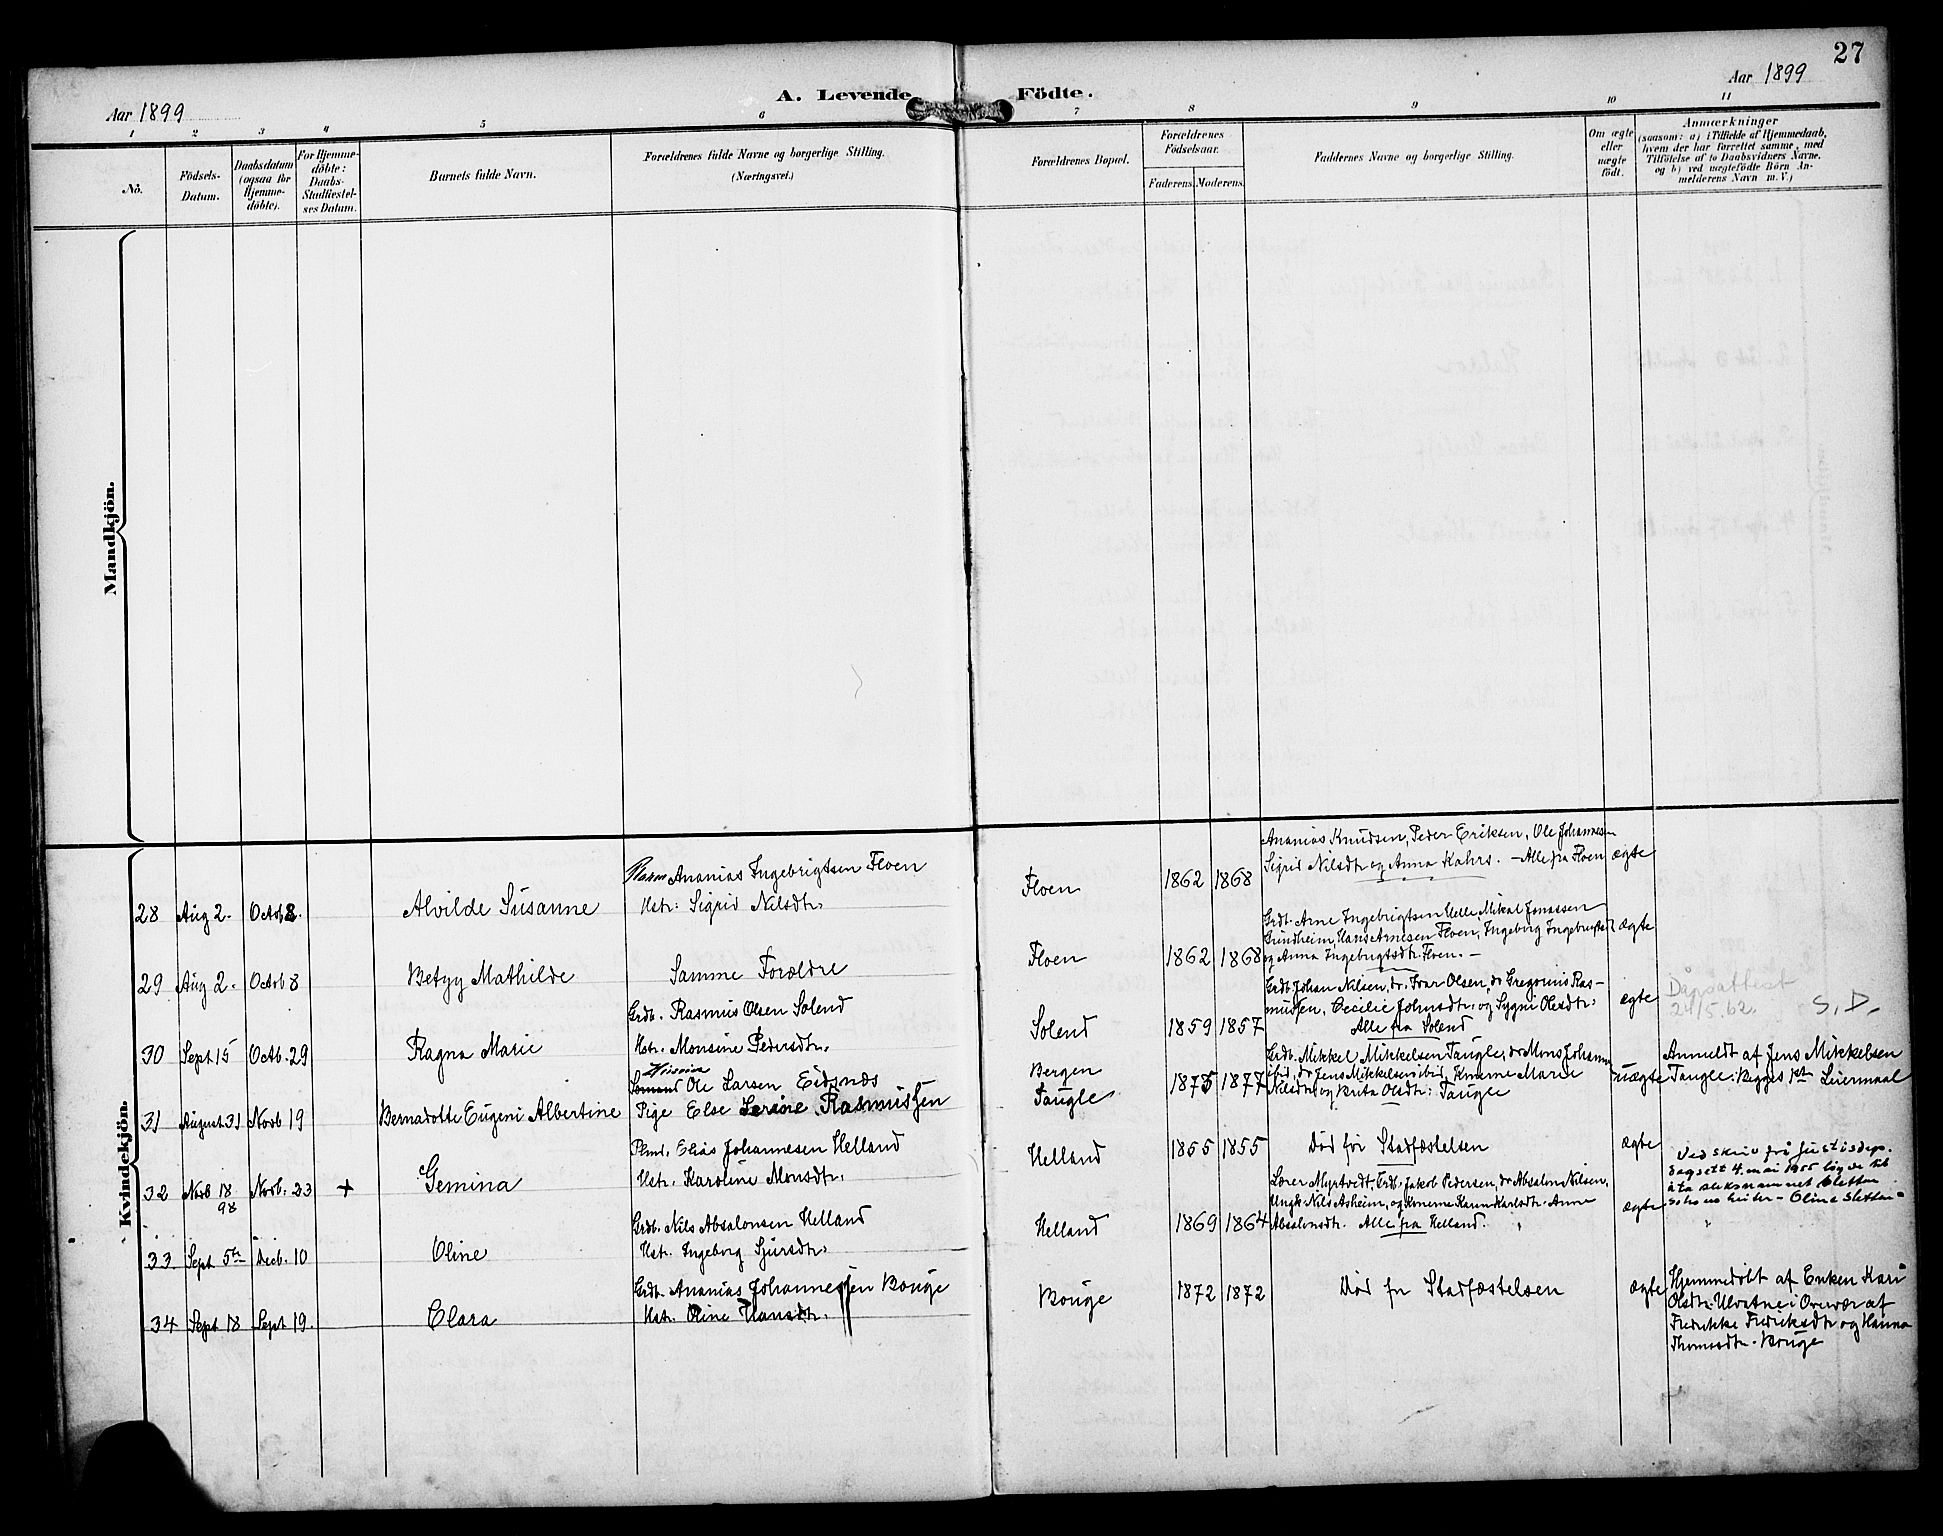 27
Aar 1899
A. Levende Födte.
Aar 1899
1 2 3 4 5 6 7 8 9 10 11
Nô.
Födsels-
Datum.
Daabsdatum
(ogsaa for
Hjemme-
döbte).
For Hjemme-
döbte:
Daabs-
Stadfæstel-
ses Datum.
Barnets fulde Navn.
Forældrenes fulde Navne og borgerlige Stilling.
(Næringsvei.)
Forældrenes Bopæl.
Forældrenes
Födselsaar.
Faderens. Moderens.
Faddernes Navne og borgerlige Stilling.
Om ægte
eller
uægte
födt.
Anmærkninger
(saasom: a) i Tilfælde af Hjemmedaab,
hvem der har forrettet samme, med
Tilföielse af to Daabsvidners Navne.
og b) ved uægtefödte Börn An-
melderens Navn m. V.)
Mandkjön.
Kvindekjön.
28 Aug 2. Octob 8. Alvilde Susanne
Ananias Ingebrigtsen Floen
Hstr: Sigrid Nilsdtr:
Floen 1862 1868
Ananias Knudsen, Peder Eriksen, Ole Johannesen
Sigrid Nilsdtr og Anna Kahrs. – Alle fra Floen
ægte
29 Aug 2. Octob 8 Betzy Mathilde
Samme Forældre
Floen 1862 1868
Grdb. Arne Ingebrigtsen Helle, Mikal Jonassen
Gundheim, Hans Arnesen Floen, Ingeborg Ingebrigtsdtr
og Anna Ingebrigtsdtr. Floen. –
ægte
30 Sept 15 Octb. 29 Ragna Marie
Grdb. Rasmus Olsen Solend
Hstr. Monsine Pedersdtr.
Solend 1859 1857
Grdb Johan Nilsen, do. Ivar Olsen, do Gregorius Ras-
mussen, Cecilie Johnsdtr. og Sygni Olesdtr:
Alle fra Solend
ægte
Dåpsattest
24/5.62. S.D.
31 August 31 Novb 19 Bernadotte Eugeni Albertine
Sömand Ole Larsen Eidsnæs
Pige Else Serine Rasmussen
Bergen
Taugle
1875 1877
Grdb. Mikkel Mikkelsen Taugle, do Mons Johann
ibid, do Jens Mikkelsen ibid, Konerne Marie
Nilsdtr og Brita Olsdtr: Taugle
uægte
Anmeldt af Jens Mikkelsen
Taugle: Begges 1st Leiermaal
32 Novb 18
98
Novb. 23 + Gemina
Plmd. Elias Johannesen Helland
Hstr. Karoline Monsdtr.
Helland 1855 1855 Död för Stadfæstelsen ægte
33 Sept 5te Decb. 10 Oline
Grdb. Nils Absalonsen Helland
Hstr. Ingeborg Sjursdtr:
Helland 1869 1864
Lærer Myrtvedt, Grdb. Jakob Pedersen, do Absalon Nilsen,
Ungk. Nils Asheim, og Konerne Karen Karlsdtr. Anne
Absalonsdtr. Alle fra Helland.
ægte
Ved skriv frå Justisdep.
dagsett 4. mai 1955 løyve til
å ta slektsnamnet Sletten
so ho no heiter – Oline Sletten –
34 Sept 18 Sept 19. Clara
Grdb. Ananias Johannessen Bouge
Hstr. Oline Hansdtr.
Bouge 1872 1872 Död før Stadfæstelsen ægte
Hjemmedöbt af Enken Kari
Olsdtr. Ulvatne i Overvær af
Fredrikke Fredriksdtr og Hanna
Thomasdtr. Bouge